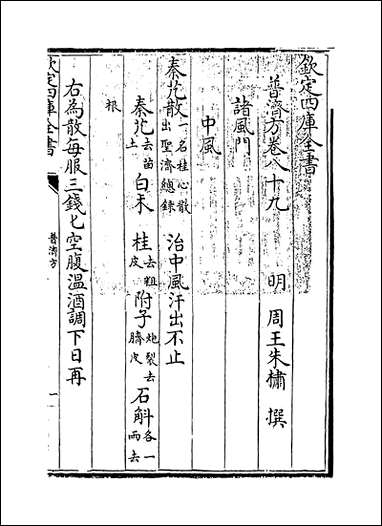 欽定四庫全書
普濟方卷八十九
明 周王朱橚 撰
諸風門
中風
秦艽散一名桂心散出聖濟總錄 治中風汗出不止
秦艽去苗土 白术 桂去粗皮 附子炮裂去臍皮 石斛各一兩去
根
右為散每服三錢匕空腹温酒調下日再
欽定四庫全書
普濟方
一